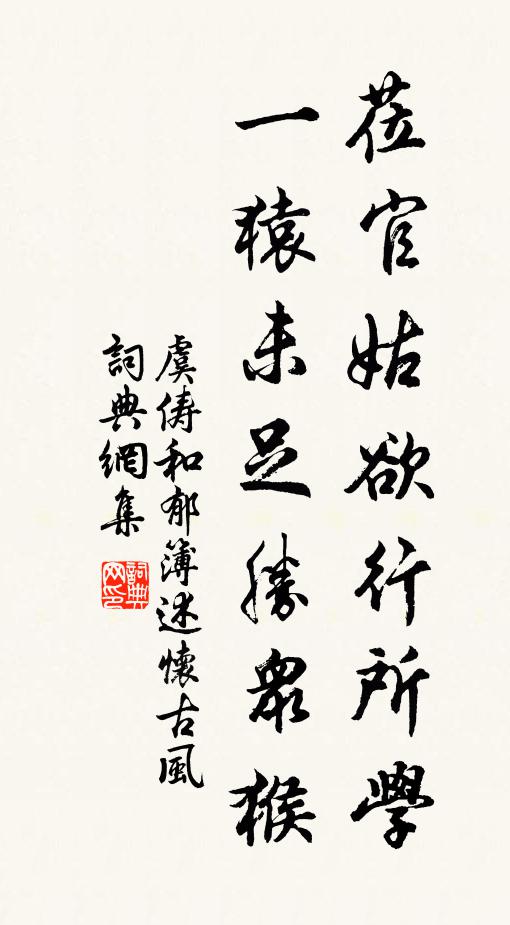 莅官姑欲行所學
一猿未足勝眾猴
虞俦和郁簿述懷古風
詞典網集
詞典网印